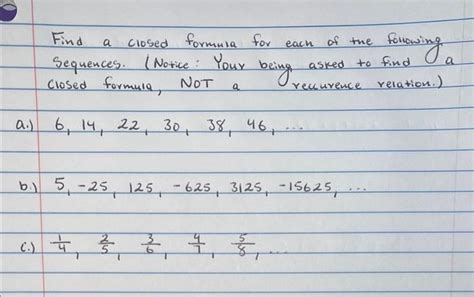 Find a closed formula for each of the following
sequences. (Notice: Your being asked to find a
closed formula, NOT a reccurence relation.)
a.) 6, 14, 22, 30, 38, 46, ...
b.) 5, -25, 125, -625, 3125, -15625, ...
c.) 1/4, 2/5, 3/6, 4/7, 5/8, ...